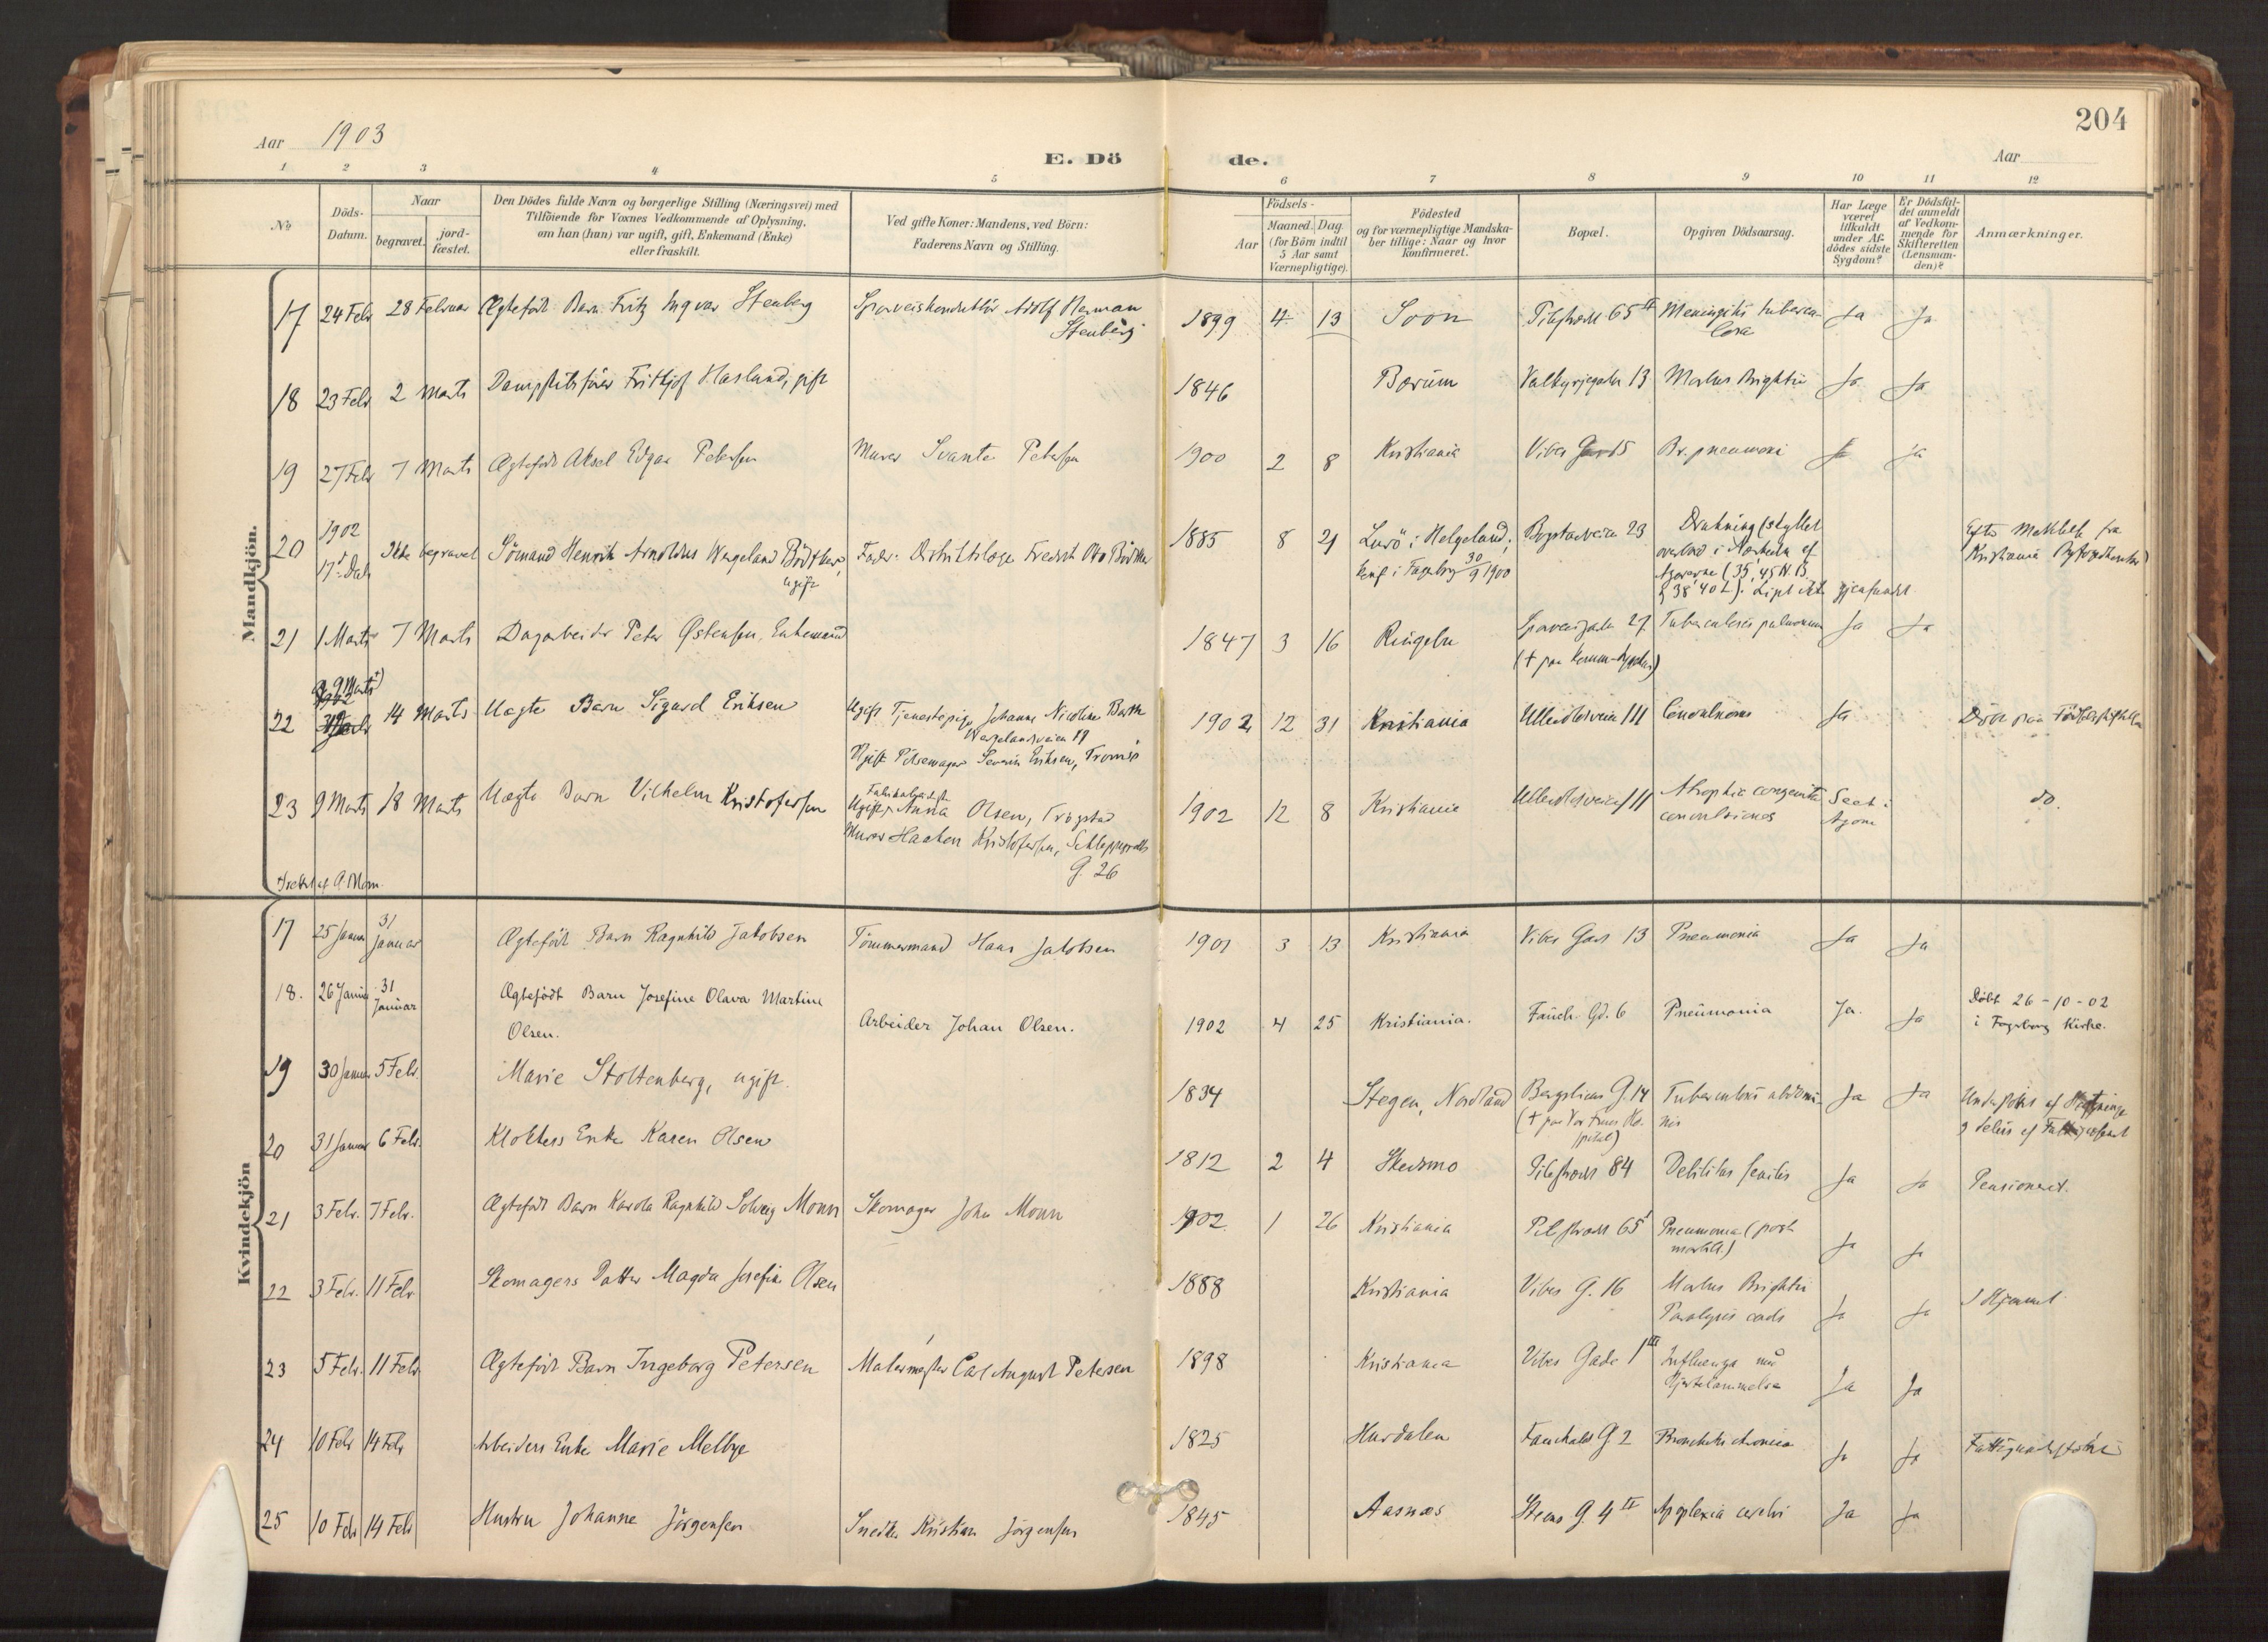 204
Aar 1903
E. Dö de.
Aar
1 2 3 4 5 6 7 8 9 10 11 12
No
Döds-Datum.
Naar
begravet.
jord-fæstet.
Den Dödes fulde Navn og borgerlige Stilling (Næringsvei) med
Tilföiende for Voxnes Vedkommende af Oplysning,
om han (hun) var ugift, gift, Enkemand (Enke)
eller fraskilt.
Ved gifte Koner: Mandens, ved Börn:
Faderens Navn og Stilling.
Födsels-
Aar
Maaned.
Dag.
(for Börn indtil
5 Aar samt
Værnepligtige).
Födested
og for værnepligtige Mandska-
ber tillige: Naar og hvor
konfirmeret.
Bopæl.
Opgiven Dödsaarsag.
Har Læge
været
tilkaldt
under Af-
dödes sidste
Sygdom?
Er Dödsfal-
det anmeldt
af Vedkom-
mende for
Skifteretten
(Lensman-
den)?
Anmærkninger.
Mandkjön.
17 24 Febr 28 Februar Ægtefödt Barn Fritz Ingvar Stenberg Sporveiskonduktör Adolf Herman
Stenberg 1899 4 13 Soon Pilestrædet 65 II Meningitis tubercu-
losa Ja Ja
18 23 Febr 2 Marts Dampskibsförer Frithjof Hasland, gift 1846 Bærum Valkyrjegaden 13 Morbus Brightii Ja Ja
19 27 Febr 7 Marts Ægtefödt Aksel Edgar Petersen Murer Svante Petersen 1900 2 8 Kristiania Vibes Gade 15 Br. pneumoni Ja Ja
20 1902
17 Ikke begravet Sömand Henrik Arnoldus Wergeland Bödtker,
ugift Fader: Distriktslæge Fredrik Otto Bödtker 1885 8 21 Lurö i Helgeland;
konf i Fagerborg 30/9 1900 Bogstadveien 23 Drukning (skyllet
overbord i Nærheden af
Azorerne (35°, 45 N. B.
38° 40 L). Liget ikke gjenfundet Efter Meddelelse fra
Kristiania
21 1 Marts 7 Marts Dagarbeider Peter Østensen, Enkemand 1847 3 16 Ringebu 27
Tuberculosis pulmonum Ja Ja
22 9 Marts 14 Marts Uægte Barn Sigurd Eriksen Ugift Tjenestepige Johanne Nicoline Barth
Wergelandsveien 19
Ugift Pölsemager Severin Eriksen, Tromsö 1902 12 31 Kristiania Ullevoldsveien 111 Convulsiones Ja Död paa Födselsstiftelsen
23 9 Marts 18 Marts Uægte Barn Vilhelm Kristofersen Fabrikarbeiderske
Ugift Anna Olsen, Trögstad
Murer Haakon Kristofersen, Schleppegrells
G. 26 1902 12 8 Kristiania Ullevoldsveien 111 Atrophia congenita
convulsiones Seet i
Agoni do.
Kvindekjön
17 25 Januar 31
Januar Ægtefödt Barn Ragnhild Jakobsen Tömmermand Hans Jakobsen 1901 3 13 Kristiania Vibes Gade 13 Pneumonia Ja Ja
18. 26 Januar 31
Januar Ægtefödt Barn Josefine Olava Martine
Olsen. Arbeider Johan Olsen. 1902 4 25 Kristiania. Fauch. Gd. 6 Pneumonia Ja. Ja Döbt 26-10-02
i Fagerborg Kirke.
19 30 Januar 5 Febr. Marie Stoltenberg, ugift. 1834 Stegen, Nordland Bergslien G. 14
(+ paa Vor Frues Ho-
spital) Tuberculosis abdomi-
nis Ja Ja
20 31 Januar 6 Febr. Klokkers Enke Karen Olsen 1812 2 4 Skedsmo Pilestrædet 84 Debilitas senilis Ja Ja Pensioneret.
21 3 Febr. 7 Febr. Ægtefödt Barn Karola Ragnhild Solveig Monn Skomager John Monn 1902 1 26 Kristiania Pilestrædet 65 Pneumonia (post
morbill.) Ja Ja
22 3 Febr. 11 Febr Skomagers Datter Magda Josefine Olsen 1888 Kristiania Vibes G. 16 Morbus Brightii
Paralysis cordis Ja Ja I Hjemmet.
23 5 Febr. 11 Febr. Ægtefödt Barn Ingeborg Petersen Malermester Carl August Petersen 1898 Kristiania Vibes Gade 1 III Influenza med
Hjertelammelse Ja Ja
24 10 Febr 14 Febr Arbeiders Enke Marie Melbye 1825 Hurdalen Fauchalds G 2 Bronchitis chronica Ja Ja Fattigunderstöttet
25 10 Febr 14 Febr Hustru Johanne Jörgensen Snedker Kristian Jörgensen 1845 Aasnæs Stens G 4 II Apoplexia cerebri Ja Ja